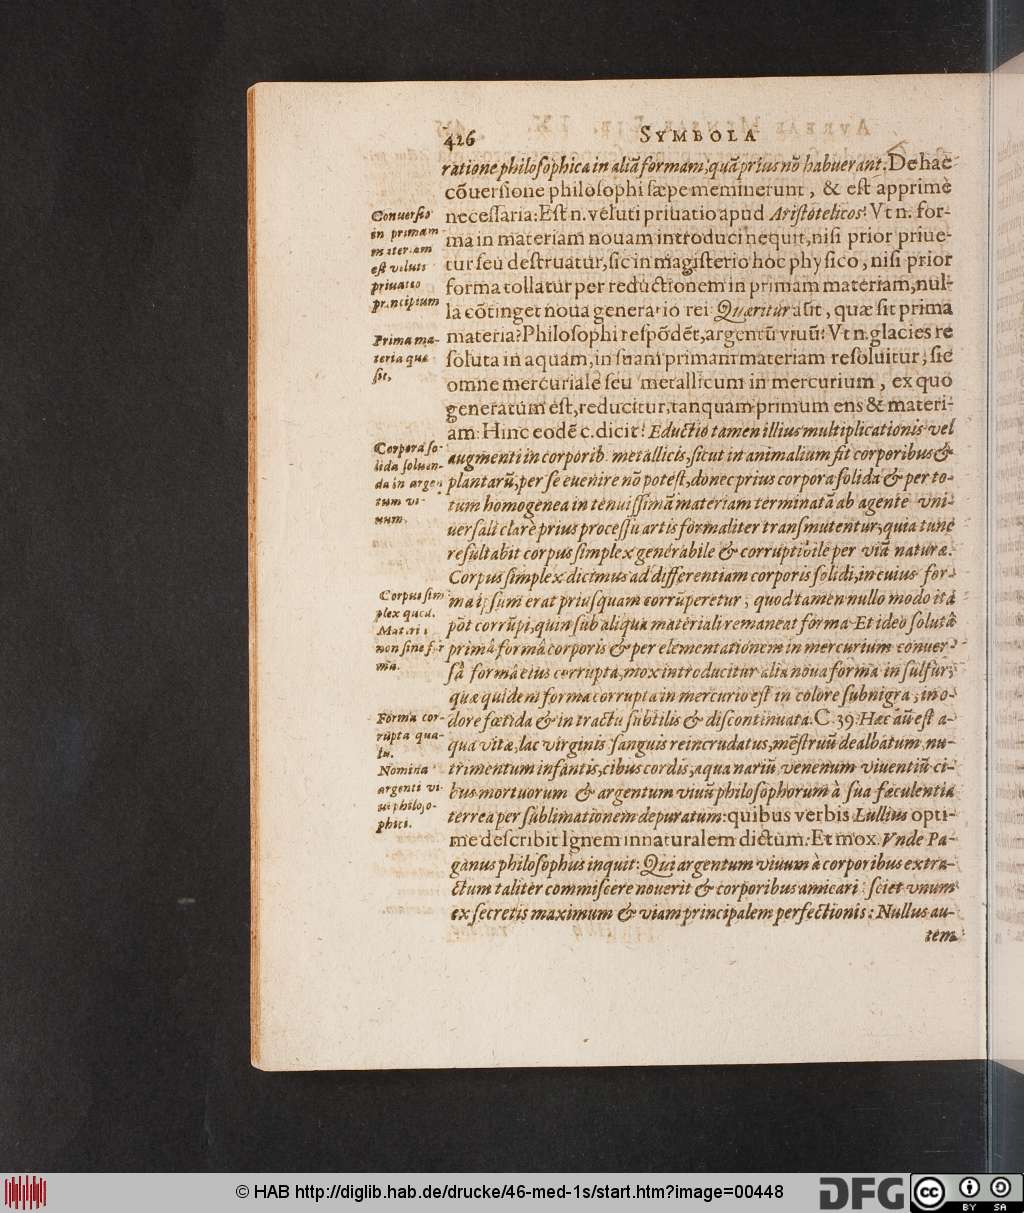 426 SYMBOLA
ratione philosophica in aliã formam, quã prius nõ habuerant. De hac
cõuersione philosophi sæpe meminerunt, & est apprimè
necessaria: Est n. veluti priuatio apud Aristotelicos: Vt n. for-
ma in materiam nouam introduci nequit, nisi prior priue-
tur seu destruatur, sic in magisterio hoc physico, nisi prior
forma tollatur per reductionem in primam materiam, nul-
la cõtinget noua generatio rei Quæritur aũt, quæ sit prima
materia? Philosophi respõdẽt, argentũ viuũ: Vt n. glacies re
soluta in aquam, in suam primam materiam resoluitur; sic
omne mercuriale seu metallicum in mercurium, ex quo
generatum est, reducitur, tanquam primum ens & materi-
am. Hinc eodẽ c. dicit: Eductio tamen illius multiplicationis vel
augmenti in corporib. metallicis, sicut in animalium fit corporibus &
plantarũ, per se euenire nõ potest, donec prius corpora solida & per to-
tum homogenea in tenuissimã materiam terminatã ab agente vni-
uersali clare prius processu artis formaliter transmutentur, quia tunc
resultabit corpus simplex generabile & corruptibile per viã naturæ.
Corpus simplex dicimus ad differentiam corporis solidi, in cuius for-
ma ipsum erat priusquam corrũperetur, quod tamen nullo modo ita
pôt corrũpi, quin sub aliqua materiali remaneat forma. Et ideo solutâ
primâ formâ corporis & per elementationem in mercurium conuer-
sâ formâ eius corrupta, mox introducitur alia noua forma in sulfur;
quæ quidem forma corrupta in mercurio est in colore subnigra, in o-
dore fœtida & in tractu subtilis & discontinuata. C. 39. Hæc aũ est a-
qua vitæ, lac virginis sanguis reincrudatus, mẽstruũ dealbatum, nu-
trimentum infantis, cibus cordis, aqua nariũ, venenum viuentiũ ci-
bus mortuorum & argentum viuũ philosophorum à sua fæculentia
terrea per sublimationem depuratum: quibus verbis Lullius opti-
me describit Ignem innaturalem dictum. Et mox. Vnde Pa-
ganus philosophus inquit: Qui argentum viuum à corporibus extra-
ctum taliter commiscere nouerit & corporibus amicari sciet vnum
ex secretis maximum & viam principalem perfectionis: Nullus au-
tem
Conuersio
in primam
materiam
est veluti
priuatio
principium
Prima ma-
teria quæ
sit,
Corpora so-
lida soluen-
da in argen
tum vi-
uum.
Corpus sim
plex quod.
Materia
non sine for
ma.
Forma cor-
rupta qua-
lis.
Nomina
argenti vi
ui philoso-
phici.
© HAB http://diglib.hab.de/drucke/46-med-1s/start.htm?image=00448
DFG
cc BY SA